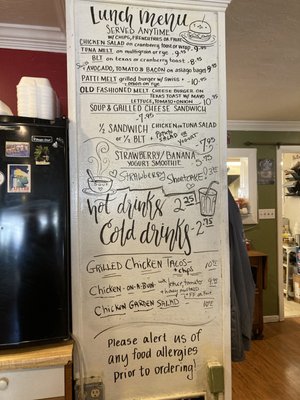 Lunch Menu
SERVED ANYTIME!
W/CHIPS, FRENCH FRIES OR FRUIT
CHICKEN SALAD on cranberry toast or wrap - 9.95
TUNA MELT on multigrain or rye - 9.95
BLT on texas or cranberry toast - 8.95
AVOCADO, TOMATO & BACON on asiago bagel
PATTI MELT grilled burger w/ swiss + onion on rye
OLD FASHIONED MELT CHEESE BURGER ON
TEXAS TOAST W/ MAYO
LETTUCE, TOMATO + ONION - 10.95
SOUP & GRILLED CHEESE SANDWICH
- 7.95
1/2 SANDWICH CHICKEN OR TUNA SALAD
OR 1/2 BLT + POTATO SALAD OR YOGURT - 7.95
STRAWBERRY / BANANA
YOGURT SMOOTHIE
STRAWBERRY SHORTCAKE
hot drinks 2.25
Cold drinks - 2.75
GRILLED CHICKEN TACOS
+ chips
CHICKEN-ON-A-BUN
CHICKEN GARDEN SALAD
Please alert us of
any food allergies
prior to ordering!